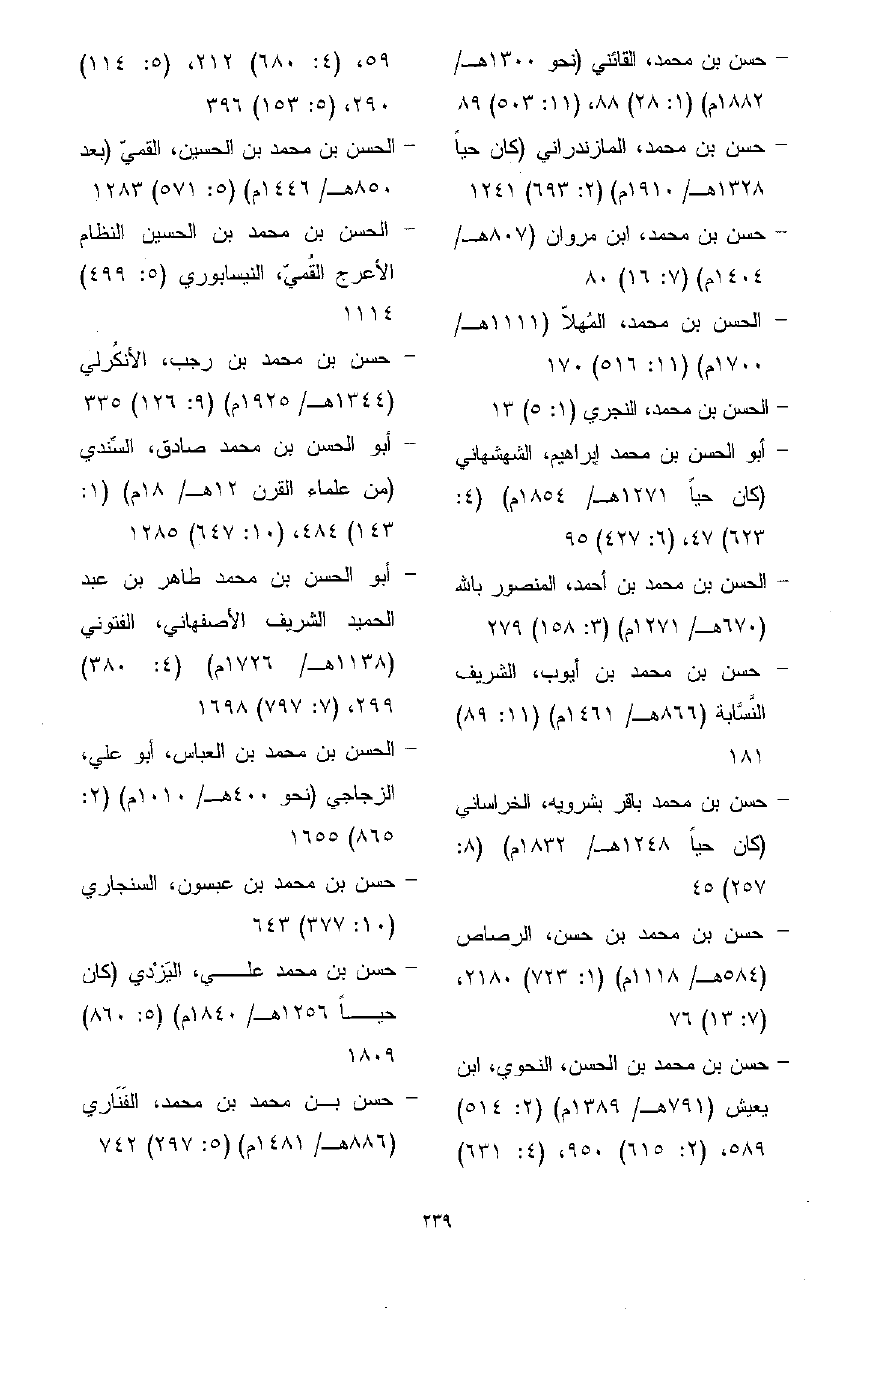 - حسن بن محمد، القائني (نحو ١٣٠٠هـ/
١٨٨٢م) (١: ٢٨) ٨٨، (١١: ٥٠٣) ٨٩
- حسن بن محمد، المازندراني (كان حياً
١٣٢٨هـ/ ١٩١٠م) (٢: ٦٩٣) ١٢٤١
- حسن بن محمد، ابن مروان (٨٠٧هـ/
١٤٠٤م) (٧: ١٦) ٨٠
- الحسن بن محمد، المُهلاّ (١١١١هـ/
١٧٠٠م) (١١: ٥١٦) ١٧٠
- الحسن بن محمد، النجري (١: ٥) ١٣
- أبو الحسن بن محمد إبراهيم، الشهشهاني
(كان حياً ١٢٧١هـ/ ١٨٥٤م) (٤:
٦٢٣) ٤٧، (٦: ٤٢٧) ٩٥
- الحسن بن محمد بن أحمد، المنصور بالله
(٦٧٠هـ/ ١٢٧١م) (٣: ١٥٨) ٢٧٩
- حسن بن محمد بن أيوب، الشريف
النَّسَّابة (٨٦٦هـ/ ١٤٦١م) (١١: ٨٩)
١٨١
- حسن بن محمد باقر بشرويه، الخراساني
(كان حياً ١٢٤٨هـ/ ١٨٣٢م) (٨:
٢٥٧) ٤٥
- حسن بن محمد بن حسن، الرصاص
(٥٨٤هـ/ ١١١٨م) (١: ٧٢٣) ٢١٨٠،
(٧: ١٣) ٧٦
- حسن بن محمد بن الحسن، النحوي، ابن
يعيش (٧٩١هـ/ ١٣٨٩م) (٢: ٥١٤)
٥٨٩، (٢: ٦١٥) ٩٥٠، (٤: ٦٣١)
٥٩، (٤: ٦٨٠) ٢١٢، (٥: ١١٤)
٢٩٠، (٥: ١٥٣) ٣٩٦
- الحسن بن محمد بن الحسين، القميّ (بعد
٨٥٠هـ/ ١٤٤٦م) (٥: ٥٧١) ١٢٨٣
- الحسن بن محمد بن الحسين النظام
الأعرج القُميّ، النيسابوري (٥: ٤٩٩)
١١١٤
- حسن بن محمد بن رجب، الأنكُرلي
(١٣٤٤هـ/ ١٩٢٥م) (٩: ١٢٦) ٣٣٥
- أبو الحسن بن محمد صادق، السّندي
(من علماء القرن ١٢هـ/ ١٨م) (١:
١٤٣) ٤٨٤، (١٠: ٦٤٧) ١٢٨٥
- أبو الحسن بن محمد طاهر بن عبد
الحميد الشريف الأصفهاني، الفتوني
(١١٣٨هـ/ ١٧٢٦م) (٤: ٣٨٠)
٢٩٩، (٧: ٧٩٧) ١٦٩٨
- الحسن بن محمد بن العباس، أبو علي،
الزجاجي (نحو ٤٠٠هـ/ ١٠١٠م) (٢:
٨٦٥) ١٦٥٥
- حسن بن محمد بن عبسون، السنجاري
(١٠: ٣٧٧) ٦٤٣
- حسن بن محمد علي، اليَزْدي (كان
حياً ١٢٥٦هـ/ ١٨٤٠م) (٥: ٨٦٠)
١٨٠٩
- حسن بن محمد بن محمد، الفَنَاري
(٨٨٦هـ/ ١٤٨١م) (٥: ٢٩٧) ٧٤٢
٢٣٩